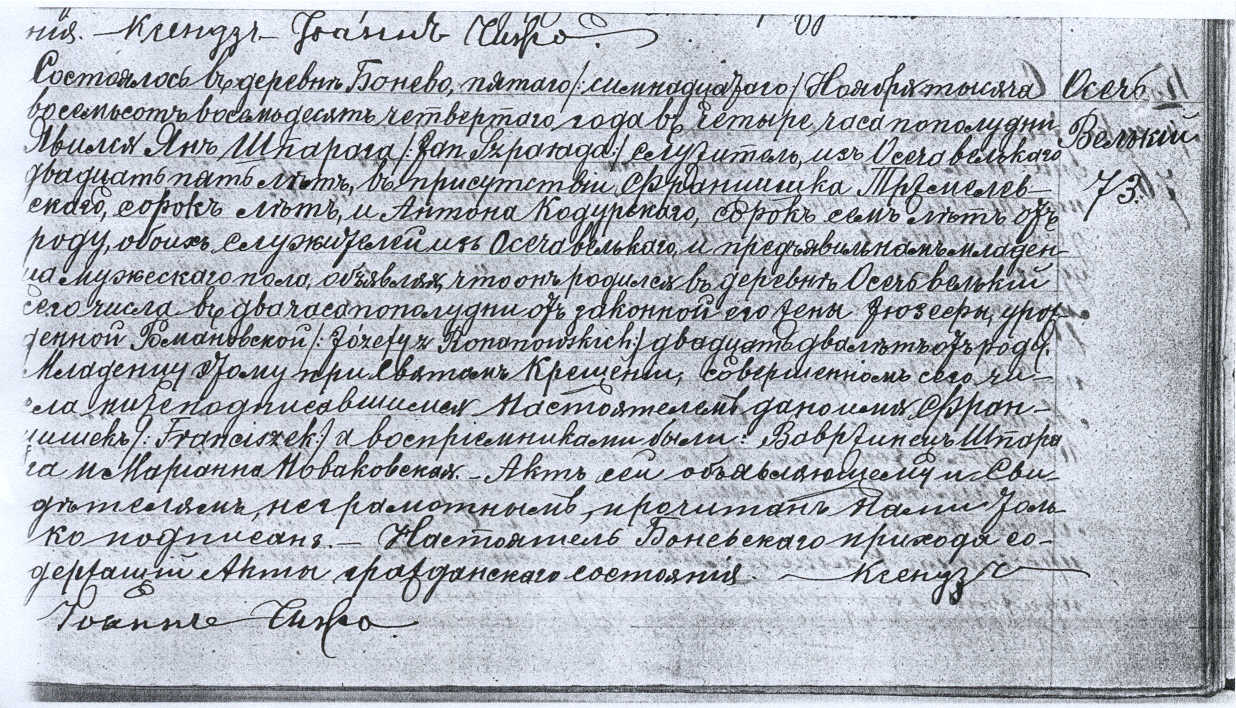 нія. — Ксендзъ Іоаннъ Чижо.
Состоялось въ деревнѣ Бонево, пятаго /: симнадцатаго / Ноября тысяча
восемьсотъ восемьдесятъ четвертаго года въ четыре часа пополудни
Явился Янъ Шпарага /: Jan Szparaga :/ служитель, изъ Осеча велькаго
двадцать пять лѣтъ, въ присутствіи Францишка
скаго, сорокъ лѣтъ, и Антона Кодурскаго, сорокъ семъ лѣтъ отъ
роду, обоихъ служителей изъ Осеча велькаго, и предъявилъ намъ младен-
ца мужескаго пола, объявляя, что онъ родился въ деревнѣ Осечь велькій
сего числа въ два часа пополудни отъ законной его жены Юзефы, урож-
денной Романовской /: Józefy z Romanowskich :/ двадцать два лѣтъ отъ роду.
Младенцу этому при Святомъ Крещеніи, совершенномъ сего чи-
сла нижеподписавшимся Настоятелемъ дано имя Фран-
цишекъ /: Franciszek :/ а воспріемниками были: Вавржинецъ Шпара
га и Маріанна Новаковская. — Актъ сей объявляющему и Сви-
дѣтелямъ, неграмотнымъ, прочитанъ Нами толь-
ко подписанъ. — Настоятель Боневскаго прихода со-
держащій Акты гражданскаго состоянія. — Ксендзъ
Іоаннъ Чижо
Осечь
Велькій
73.